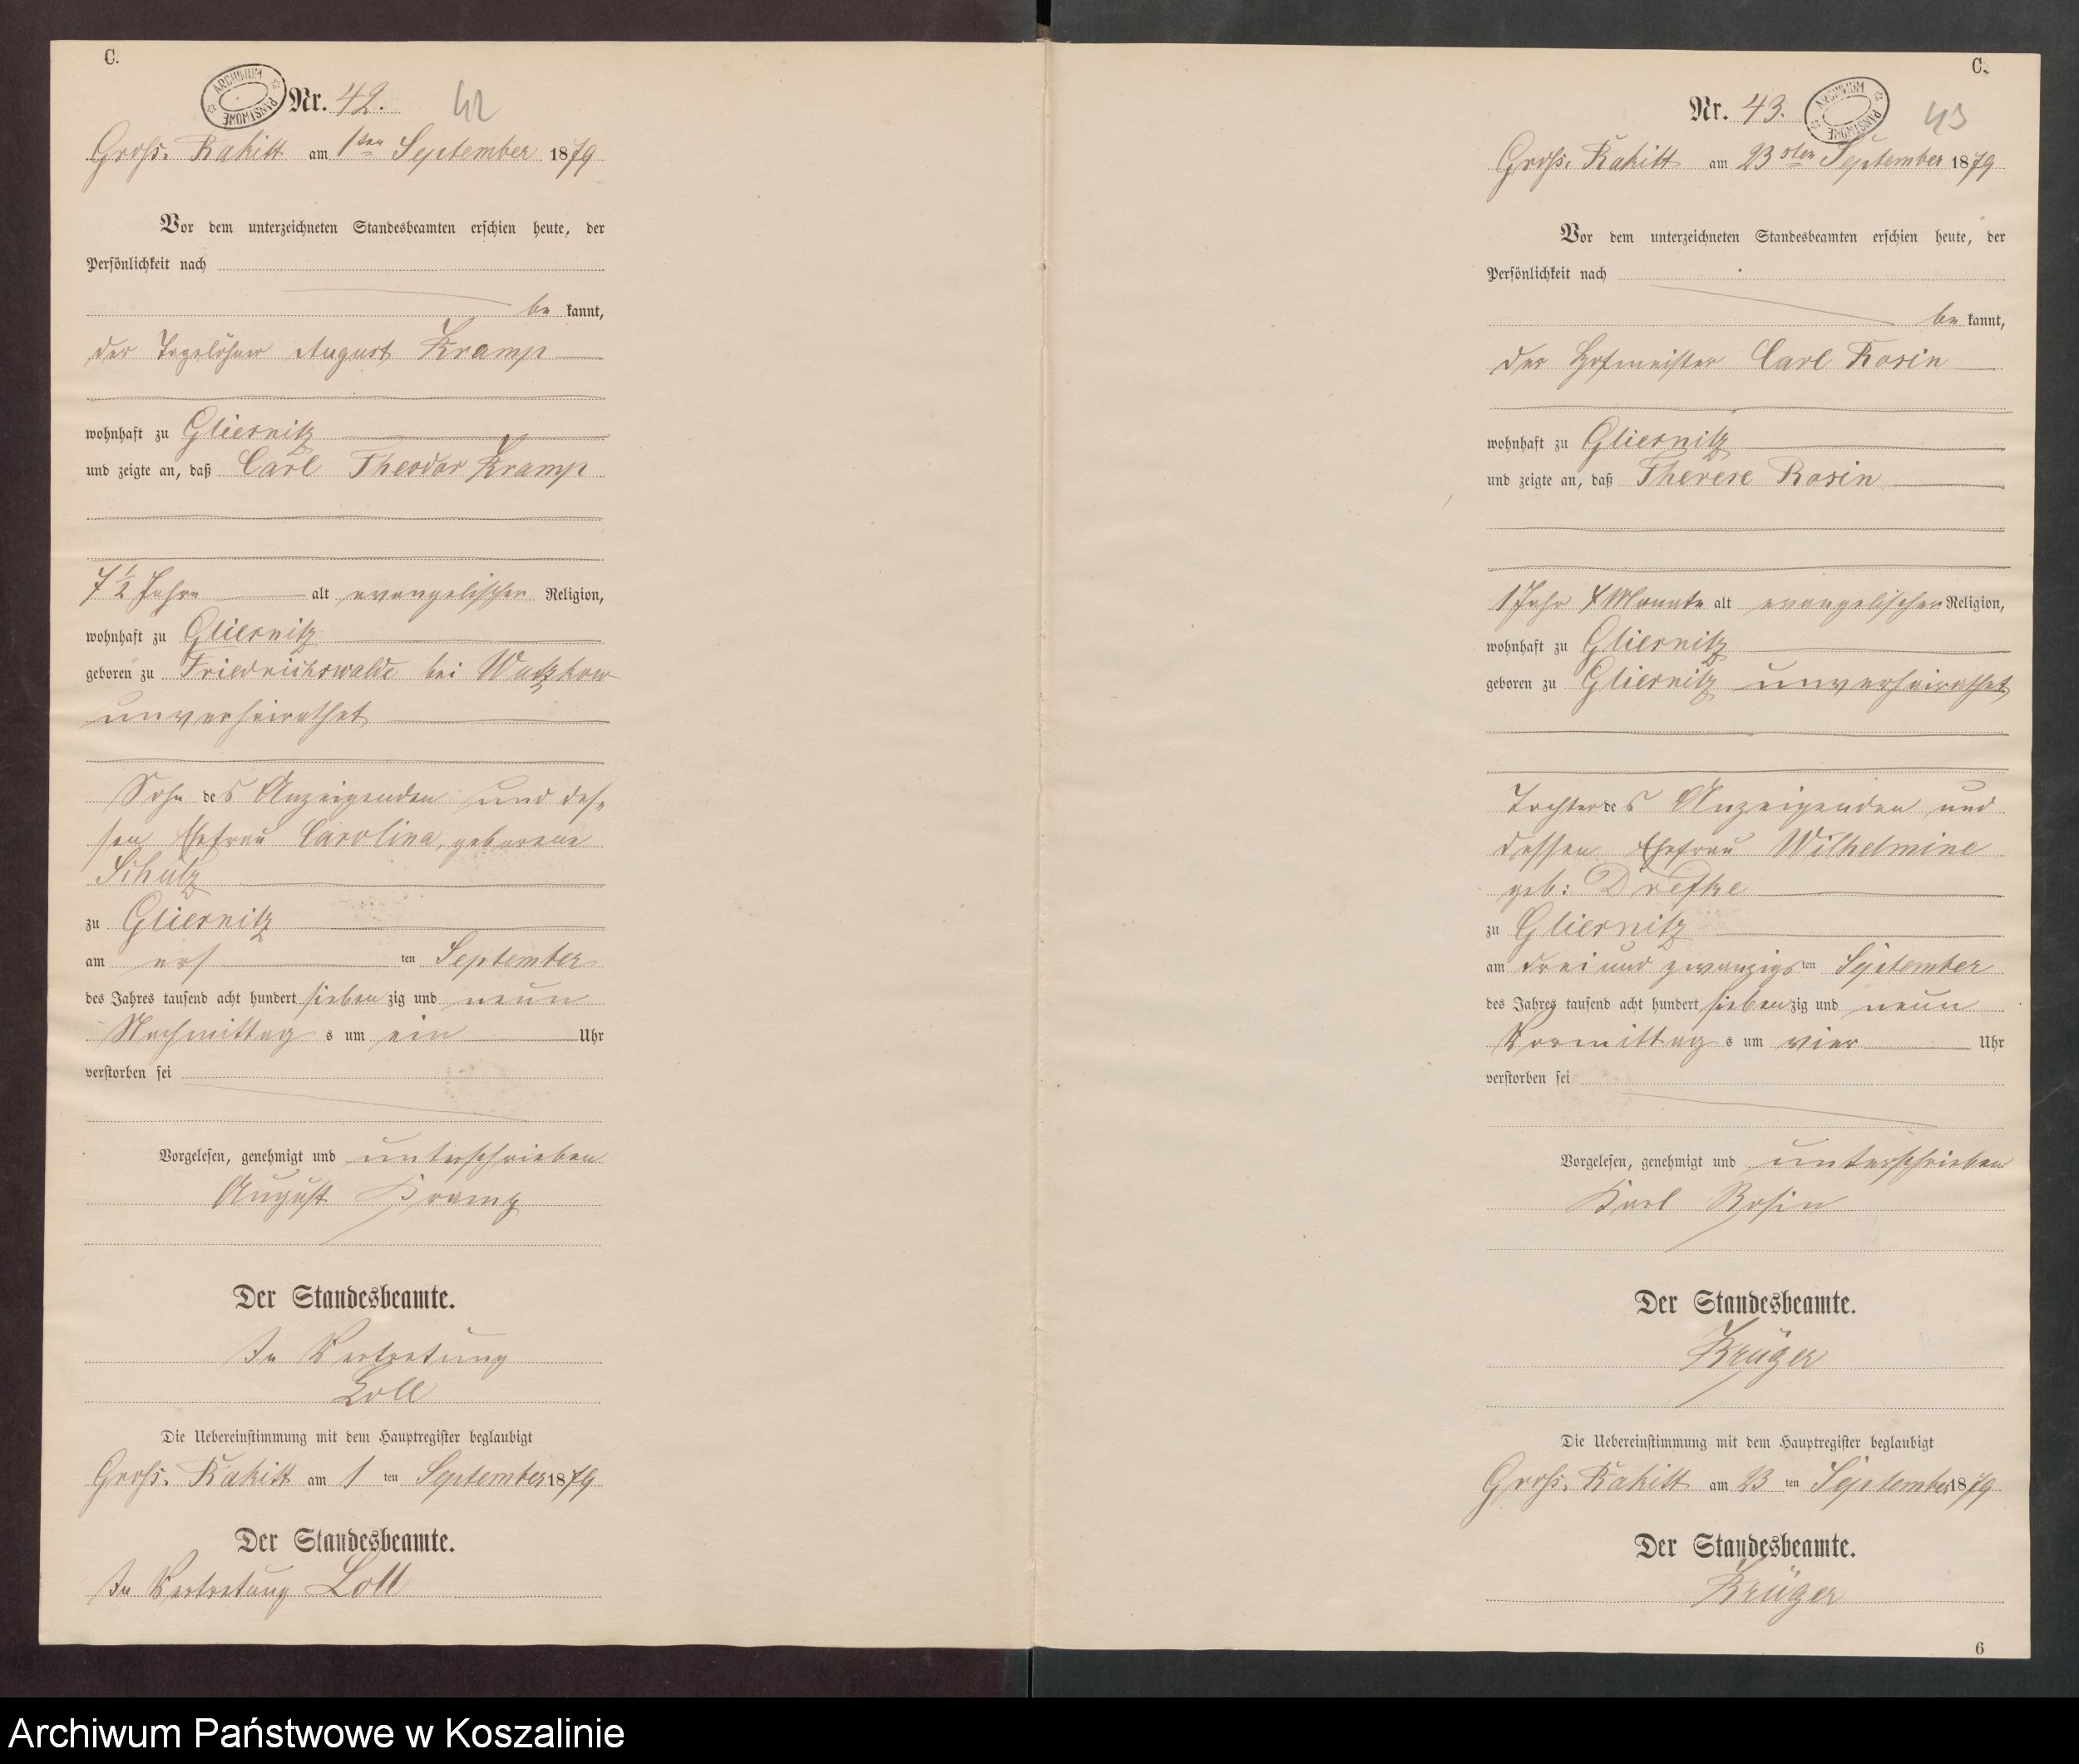 C.
ARCHIWUM PAŃSTWOWE
Nr. 42. 42
Gross. Rakitt am 1ten September 1879
Vor dem unterzeichneten Standesbeamten erschien heute, der
Persönlichkeit nach
be kannt,
der Tagelöhner August Kramp
wohnhaft zu Gliesnitz
und zeigte an, daß Carl Theodor Kramp
7 1/2 Jahre alt evangelischer Religion,
wohnhaft zu Gliesnitz
geboren zu Friedrichswalde bei Wutzkow
unverheirathet
Sohn des Anzeigenden und des-
sen Ehefrau Carolina, geborene
Schulz
zu Gliesnitz
am ers ten September
des Jahres tausend acht hundert sieben zig und neun
Nachmittag s um ein Uhr
verstorben sei
Vorgelesen, genehmigt und unterschrieben
August Kramp
Der Standesbeamte.
In Vertretung
Loll
Die Uebereinstimmung mit dem Hauptregister beglaubigt
Gross. Rakitt am 1 ten September 1879
Der Standesbeamte.
In Vertretung Loll
C.
Nr. 43. 43
ARCHIWUM PAŃSTWOWE
Gross. Rakitt am 23sten September 1879
Vor dem unterzeichneten Standesbeamten erschien heute, der
Persönlichkeit nach
be kannt,
der Hofmeister Carl Rosin
wohnhaft zu Gliesnitz
und zeigte an, daß Therese Rosin
1 Jahr 4 Monate alt evangelischer Religion,
wohnhaft zu Gliesnitz
geboren zu Gliesnitz unverheirathet
Tochter des Anzeigenden und
dessen Ehefrau Wilhelmine
geb: Drefke
zu Gliesnitz
am drei und zwanzigs ten September
des Jahres tausend acht hundert sieben zig und neun
Vormittag s um vier Uhr
verstorben sei
Vorgelesen, genehmigt und unterschrieben
Karl Rosin
Der Standesbeamte.
Krüger
Die Uebereinstimmung mit dem Hauptregister beglaubigt
Gross. Rakitt am 23 ten September 1879
Der Standesbeamte.
Krüger
6
Archiwum Państwowe w Koszalinie